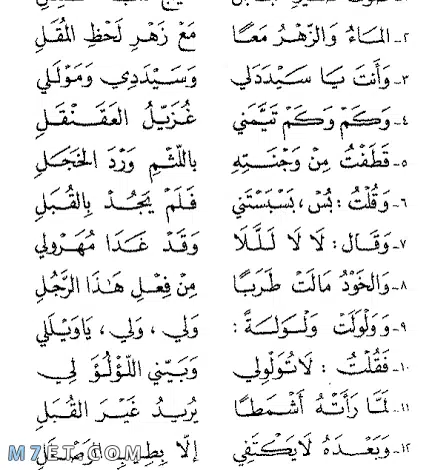 ٢- المَاءُ وَالزَّهْرُ مَعًا مَعْ زَهْرِ لَحْظِ المُقَلِ
٣- وَأَنْتَ يَا سَيِّدَدَلِي وَسَيِّدَدِي وَمَوْلَلِي
٤- وَكَمْ وَكَمْ تَيَّمَنِي غُزَيِّلُ العَقَنْقَلِ
٥- قَطَفْتُ مِنْ وَجْنَتِهِ بِاللَّثْمِ وَرْدَ الخَجَلِ
٦- وَقُلْتُ: بُسْ، بَسْبَسْتَنِي فَلَمْ يَجُدْ بِالقُبَلِ
٧- وَقَال: لَا لَا لَلَلَا وَقَدْ غَدَا مُهَرْوِلِي
٨- وَالخَوْدُ مَالَتْ طَرَبًا مِنْ فِعْلِ هَذَا الرَّجُلِ
٩- وَوَلْوَلَتْ وَلْوَلَةً: وَلِي، وَلِي، يَاوَيْلَلِي
١٠- فَقُلْتُ: لَاتُوَلْوِلِي وَبَيِّنِي اللُّؤْلُؤَ لِي
١١- لَمَّا رَأَتْهُ أَشْمَطًا يُرِيدُ غَيْرَ القُبَلِ
١٢- وَبَعْدَهُ لَايَكْتَفِي إلَّا بِطِيبِ
M7ET.COM